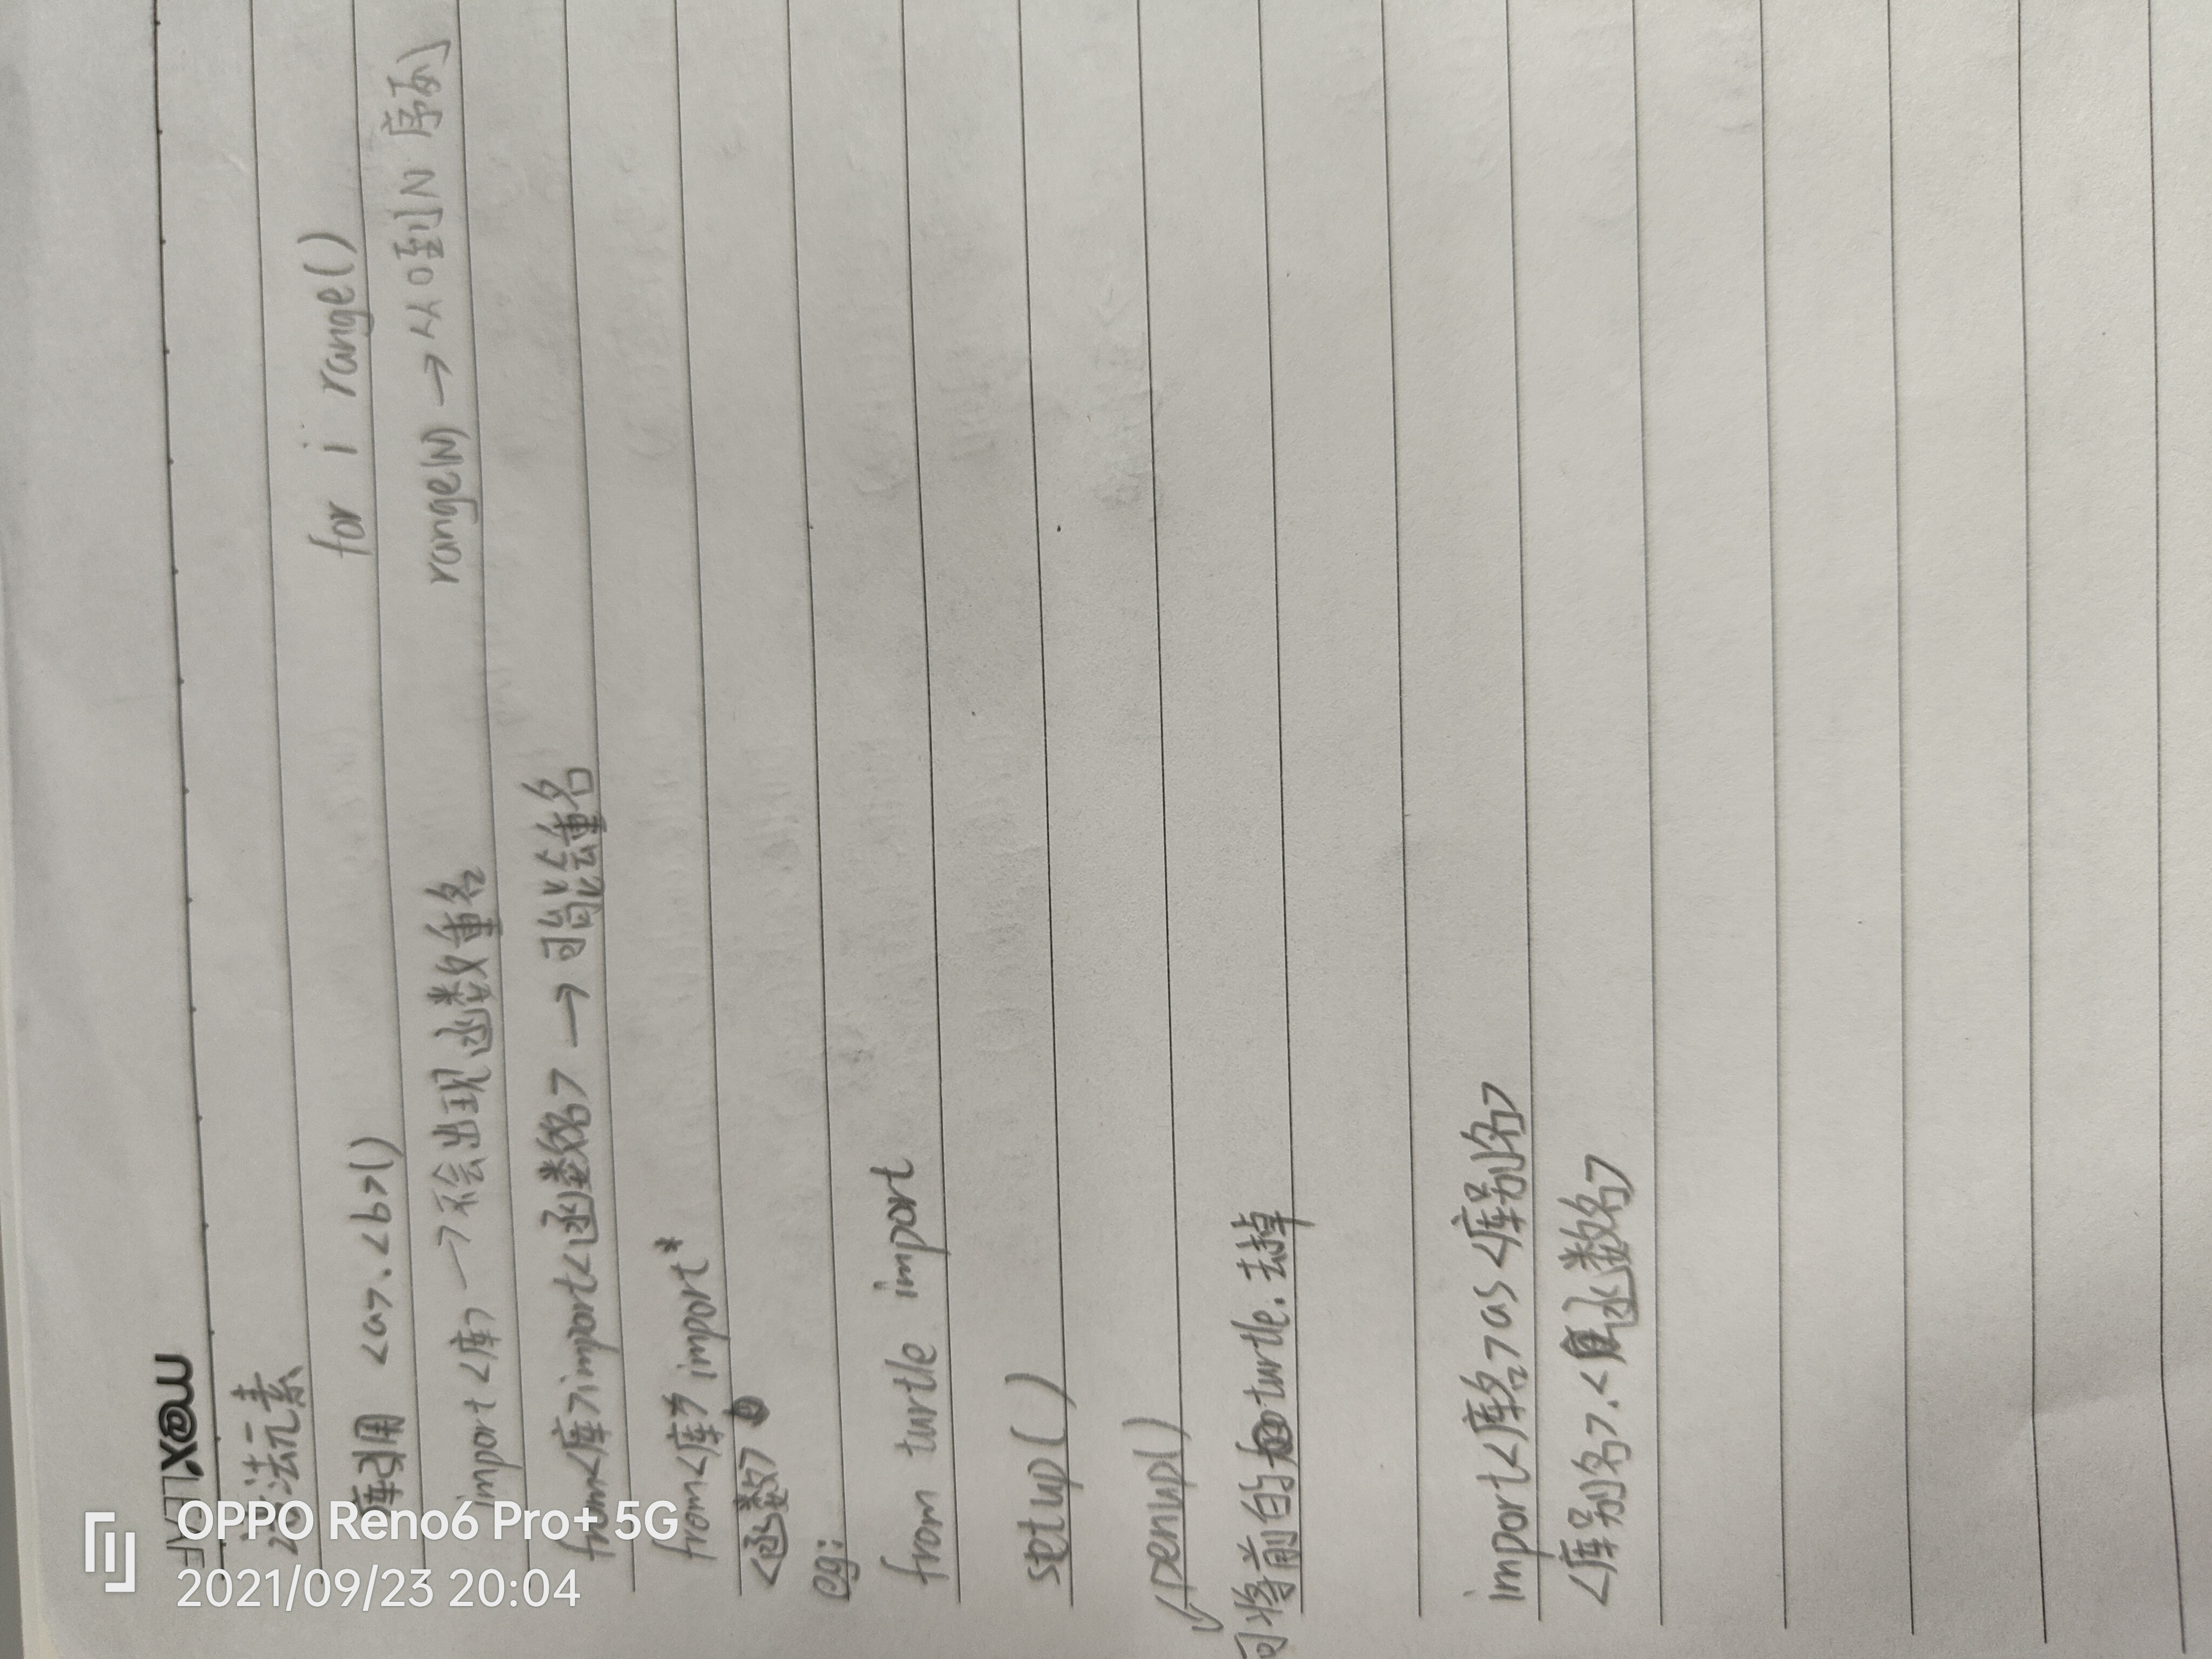 LEAF m@x
语法元素
库引用 <a>.<b>()
for i range()
import <库> → 不会出现函数重名
range(N) → 从0到N 序列
from<库>import<函数名> → 可能会重名
from<库名 import*
<函数>
eg:
from turtle import
setup()
penup()
可将前的 turtle. 去掉
import<库名>as<库别名>
<库别名>.<函数名>
OPPO Reno6 Pro+ 5G
2021/09/23 20:04